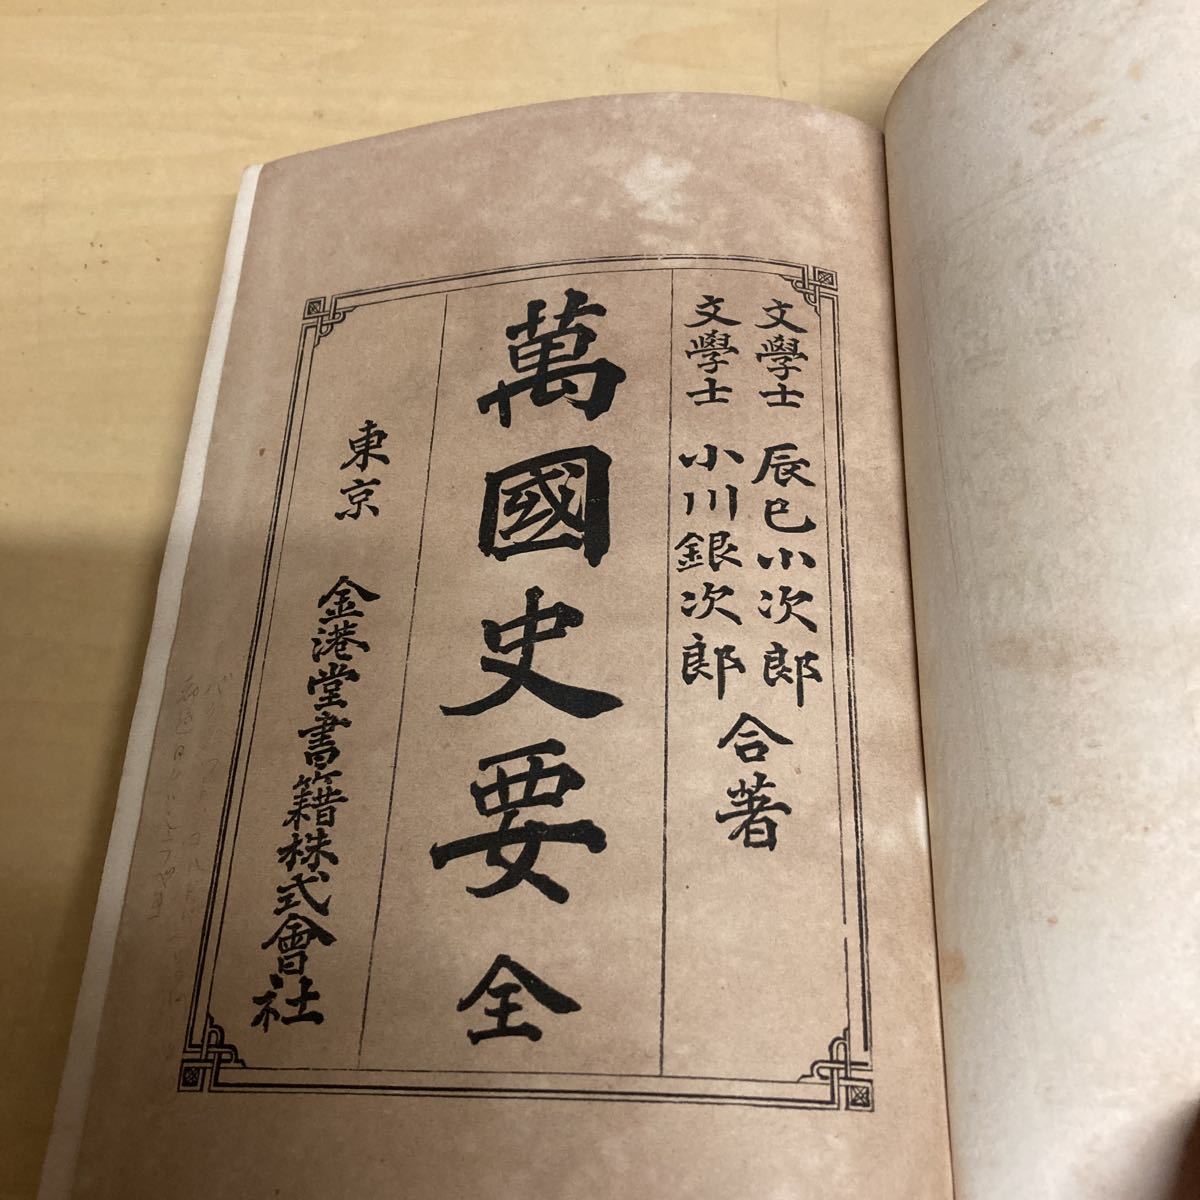 文學士 辰巳小次郎
文學士 小川銀次郎
合著
萬國史要 全
東京 金港堂書籍株式會社